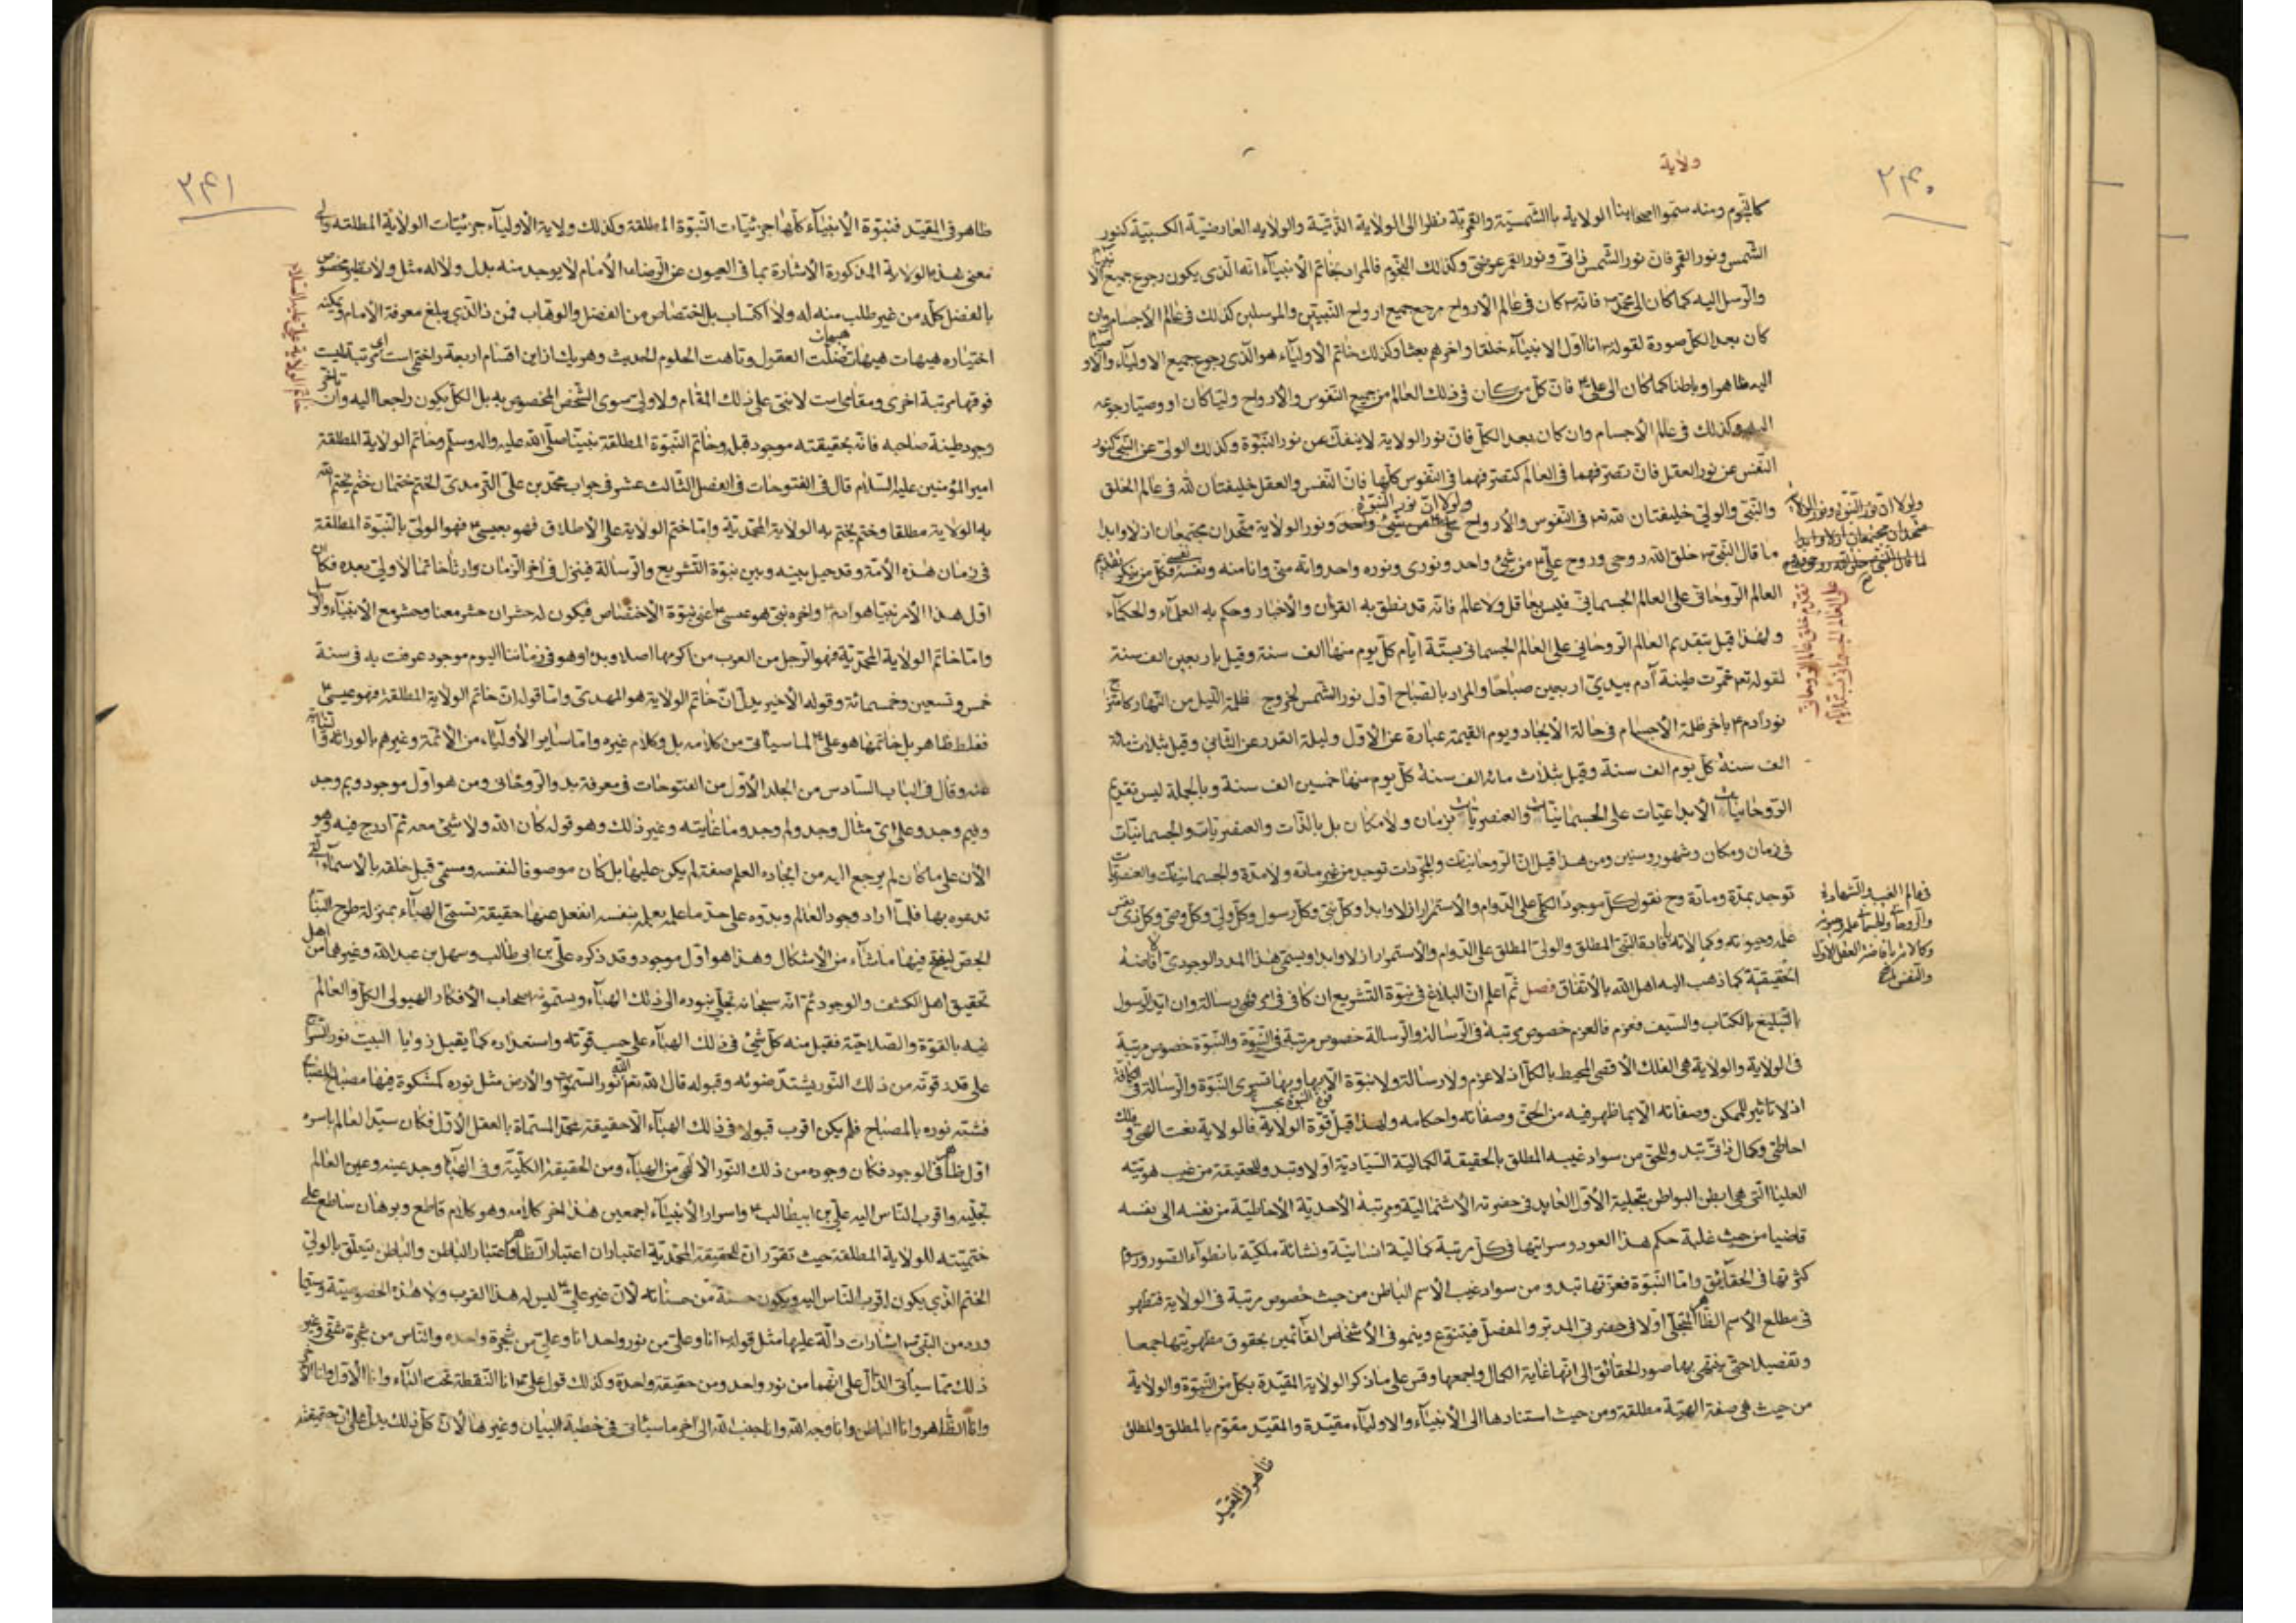 ولاية
۲۴۰
كالنجوم ومنه سموا اصحابنا الولاية بالشمسية والقمرية نظرا الى الولاية الذاتية والولاية العارضية الكسبية كنور
الشمس ونور القمر فان نور الشمس ذاتى ونور القمر عرضى وكذلك النجوم فالمراد بخاتم الانبياء انه الذى يكون رجوع جميع الا
والرسل اليه كما كان الى محمد ص فانه ص كان فى عالم الارواح مرجع جميع ارواح النبيين والمرسلين كذلك فى عالم الاجسام وان
كان بعد الكل صورة لقوله ص انا اول الانبياء خلقا واخرهم بعثا وكذلك خاتم الاولياء هو الذى رجوع جميع الاولياء والاو
اليه ظاهرا وباطنا كما كان الى على ع فان كل من كان فى ذلك العالم من جميع النفوس والارواح وليا كان او وصيا رجوعه
اليه وكذلك فى عالم الاجسام وان كان بعد الكل فان نور الولاية لا ينفك عن نور النبوة وكذلك الولى عن النبى كنور
النفس عن نور العقل فان تصرفهما فى العالم كتصرفهما فى النفوس كلها فان النفس والعقل خليفتان لله فى عالم الخلق
والنبى والولى خليفتان لله تعم فى النفوس والارواح ولولا ان نور النبوة ونور الولاية متحدان مجتمعان ازلا وابدا
ما قال النبى ص خلق الله روحى وروح على ع من شئ واحد ونورى ونوره واحد وانه منى وانا منه ونفسه نفسى فكل من ينكر تقديم
العالم الروحانى على العالم الجسمانى فليس بعاقل ولا عالم فانه قد نطق به القران والاخبار وحكم به العلماء والحكماء
ولهذا قيل بتقديم العالم الروحانى على العالم الجسمانى بستة ايام كل يوم منها الف سنة وقيل باربعين الف سنة
لقوله تعم خمرت طينة آدم بيدى اربعين صباحا والمراد بالصباح اول نور الشمس لخروج ظلمة الليل من النهار كامتزاج
نور آدم ع باخر ظلمة الاجسام فى حالة الايجاد ويوم القيمة عبارة عن الاول وليلة القدر عن الثانى وقيل بثلاث مائة
الف سنة كل يوم الف سنة وقيل بثلاث مائة الف سنة كل يوم منها خمسين الف سنة وبالجملة ليس تقديم
الروحانيات الابداعيات على الجسمانيات والعنصريات بزمان ولا مكان بل بالذات والعنصريات والجسمانيات
فى زمان ومكان وشهور وسنين ومن هذا قيل ان الروحانيات والمجردات توجد من غير مادة ولا مدة والجسمانيات والعنصريات
توجد بمدة ومادة وح نقول كل موجود الكلى على الدوام والاستمرار ازلا وابدا وكل نبى وكل رسول وكل ولى وكل وصى وكل ذى نفس
علمه وحيوته وكمالاته بافاضة النبى المطلق والولى المطلق على الدوام والاستمرار ازلا وابدا ويسمى هذا المدد الوجودى
الحقيقية كما ذهب اليه اهل الله بالاتفاق فصل ثم اعلم ان البلاغ فى نبوة التشريع ان كا فى فى امر فهى رسالة وان ايد الرسول
بالتبليغ بالكتاب والسيف فعزم فالعزم خصوص مرتبة فى الرسالة والرسالة خصوص مرتبة فى النبوة والنبوة خصوص مرتبة
فى الولاية والولاية هى الفلك الاقصى المحيط بالكل اذ لا عزم ولا رسالة ولا نبوة الا بها وبها تسرى النبوة والرسالة فى
اذ لا تاثير للممكن وصفاته الا بما ظهر فيه من الحق وصفاته واحكامه ولهذا قيل قوة النبوة بحسب قوة الولاية فالولاية نعت الهى و فلك
احاطى وكمال ذاتى تبد وللحق من سواد غيبه المطلق بالحقيقة الكمالية السيادية اولا وتبد وللحقيقة من غيب هويته
العليا التى هى ابطن البواطن بتجلية الاول العايد فى حضرته الاشتمالية ومرتبة الاحدية الاحاطية من نفسه الى نفسه
قاضيا من حيث غلبة حكم هذا العود وسرايتها فى كل مرتبة كمالية انسانية ونشائة ملكية بانطواء الصور وزوم
كثرتها فى الحقائق واما النبوة فعزتها تبدو من سواد غيب الاسم الباطن من حيث خصوص مرتبة فى الولاية فتظهر
فى مطلع الاسم الظاهر المتجلى اولا فى حضرتى المدبر والمفصل فيتنوع وينمو فى الاشخاص القائمين بحقوق مظهريتها جمعا
وتفصيلا حتى ينتهى بها صور الحقائق الى انها غاية الكمال واجمعها وقس على ما ذكر الولاية المقيدة بكل من النبوة والولاية
من حيث هى صفة الهية مطلقة ومن حيث استنادها الى الانبياء والاولياء مقيدة والمقيد مقوم بالمطلق والمطلق
ظاهر فى المقيد
ولولا ان نور النبوة ونور الولاية
متحدان مجتمعان ازلا وابدا
لما قال النبى خلق الله روحى وروح
تقدم خلق عالم الروحانى
على العالم الجسمانى بستة ايام
فى عالم الغيب والشهادة
والروحانيات والجسمانيات علمه وحيوته
وكمالاته بافاضة العقل الاول
والنفس
۲۴۱
ظاهر فى المقيد فنبوة الانبياء كلها جزئيات النبوة المطلقة وكذلك ولاية الاولياء جزئيات الولاية المطلقة والى
معنى هذه الولاية المذكورة الاشارة بما فى العيون عن الرضا ع الامام لا يوجد منه بدل ولا له مثل ولا نظير مخصوص
بالفضل كله من غير طلب منه له ولا اكتساب بل اختصاص من الفضل والوهاب فمن ذا الذى يبلغ معرفة الامام ويمكنه
اختياره هيهات هيهات هيهات ضلت العقول وتاهت الحلوم الحديث وهر يك از اين اقسام اربعة را ختمى است اى مرتبة ليست
فوقها مرتبة اخرى ومقامى است لا نبى على ذلك المقام ولا ولى سوى الشخص المخصوص به بل الكل يكون راجعا اليه وان تاخر
وجود طينة صاحبه فانه بحقيقته موجود قبل وخاتم النبوة المطلقة نبينا صلى الله عليه واله وسلم وخاتم الولاية المطلقة
امير المؤمنين عليه السلام قال فى الفتوحات فى الفصل الثالث عشر فى جواب محمد بن على الترمدى الختم ختمان ختم يختم الله
به الولاية مطلقا وختم يختم به الولاية المحمدية واما ختم الولاية على الاطلاق فهو بعيسى ع فهو الولى بالنبوة المطلقة
فى زمان هذه الامة وقد حيل بينه وبين نبوة التشريع والرسالة فينزل فى آخر الزمان وارثا خاتما لا ولى بعده فكان
اول هذا الامر نبيا هو ادم ع واخره نبى هو عيسى ع اعنى نبوة الاختصاص فيكون له حشران حشر معنا وحشر مع الانبياء والرسل
واما خاتم الولاية المحمدية فهو الرجل من العرب من اكرمها اصلا وبدا وهو فى زماننا اليوم موجود عرفت به فى سنة
خمس وتسعين وخمسمائة وقوله الاخير يدل ان خاتم الولاية هو المهدى واما قوله ان خاتم الولاية المطلقة فهو عيسى ع
فغلط ظاهر بل خاتمها هو على ع لما سياتى من كلامه بل وكلام غيره واما ساير الاولياء من الائمة وغيرهم بالوراثة
عنه وقال فى الباب السادس من الجلد الاول من الفتوحات فى معرفة بدو الروحانى ومن هو اول موجود وبم وجد
وفيم وجد وعلى اى مثال وجد ولم وجد وما غايته وغير ذلك وهو قوله كان الله ولا شئ معه ثم ادرج فيه وهو
الان على ما كان لم يرجع اليه من ايجاده العلم صفة لم يكن عليها بل كان موصوفا لنفسه ومسمى قبل خلقه بالاسماء التى
تدعوه بها فلما اراد وجود العالم وبدوه على حد ما علمه بعلمه بنفسه انفعل عنها حقيقة تسمى الهباء بمنزلة طرح البناء
الجص ليفتح فيها ما شاء من الاشكال وهذا هو اول موجود وقد ذكره على بن ابى طالب وسهل بن عبد الله وغيرهما من اهل
تحقيق اهل الكشف والوجود ثم انه سبحانه تجلى بنوره الى ذلك الهباء ويسمونه اصحاب الافكار الهيولى الكل والعالم
فيه بالقوة والصلاحية فقبل منه كل شئ فى ذلك الهباء على حسب قوته واستعداده كما يقبل زوايا البيت نور السراج
على قدر قوته من ذلك النور يشتد ضوئه وقبوله قال الله تعم الله نور السموات والارض مثل نوره كمشكوة فيها مصباح المصباح
فشبه نوره بالمصباح فلم يكن اقرب قبولا فى ذلك الهباء الا حقيقة محمد المسماة بالعقل الاول فكان سيد العالم باسره
اول ظاهر فى الوجود فكان وجوده من ذلك النور الالهى من الهباء ومن الحقيقة الكلية وفى الهباء وجد عينه وعين العالم
تجليه واقرب الناس اليه على بن ابيطالب ع واسرار الانبياء اجمعين هذا اخر كلامه وهو كلام قاطع وبرهان ساطع على
ختميته للولاية المطلقة حيث تقرر ان للحقيقة المحمدية اعتباران اعتبار الظاهر واعتبار الباطن والباطن يتعلق بالولى
الختم الذى يكون اقرب الناس اليه ويكون حسنة من حسناته لان غير على ع ليس له هذا القرب ولا هذه الخصوصية وسيما
ورد من النبى ص اشارات دالة عليها مثل قوله ص انا وعلى من نور واحد انا وعلى من شجرة واحده والناس من شجرة شتى وغير
ذلك مما سياتى الدال على انهما من نور واحد ومن حقيقة واحدة وكذلك قول على ع انا النقطة تحت الباء وانا الاول وانا الاخر
وانا الظاهر وانا الباطن وانا وجه الله وانا جنب الله الى اخر ما سياتى فى خطبة البيان وغيرها لان كل ذلك يدل على ان حقيقته
خاتم الولاية على عليه السلام